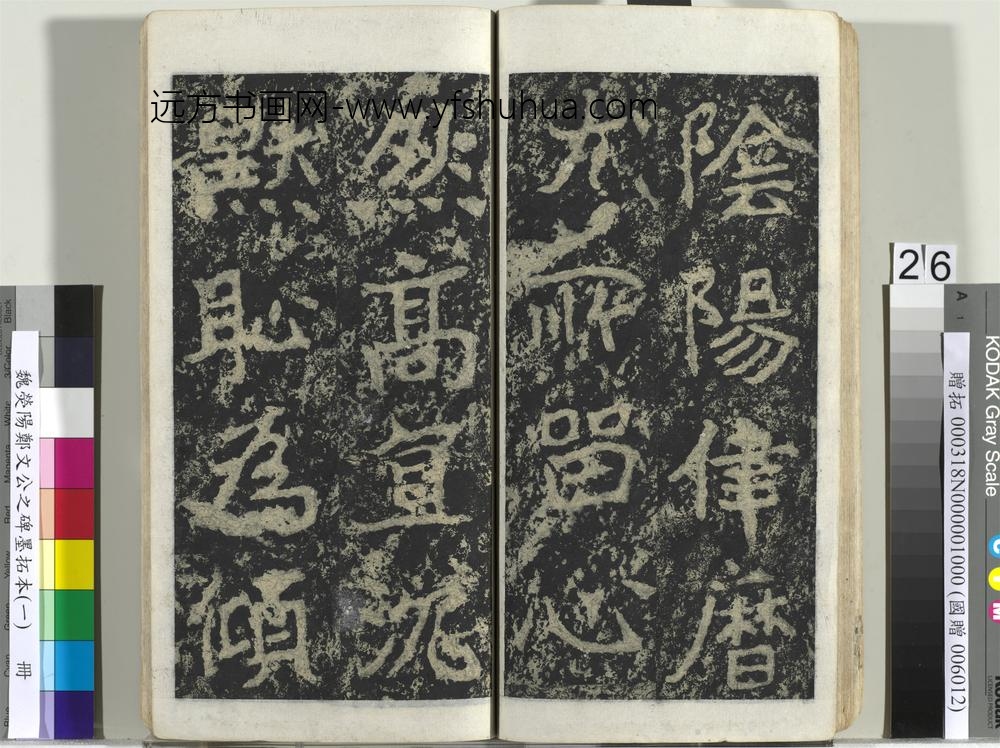 陰陽律曆
尤所留心
然高直沉
默恥為傾
远方书画网-www.yfshuhua.com
魏滎陽鄭文公之碑墨拓本(一) 冊
26
贈拓 000318N000001000 (國贈 006012)
KODAK Gray Scale
A 1
Black
3/Color
White
Magenta
Red
Yellow
Green
Cyan
Blue
C
Y
M